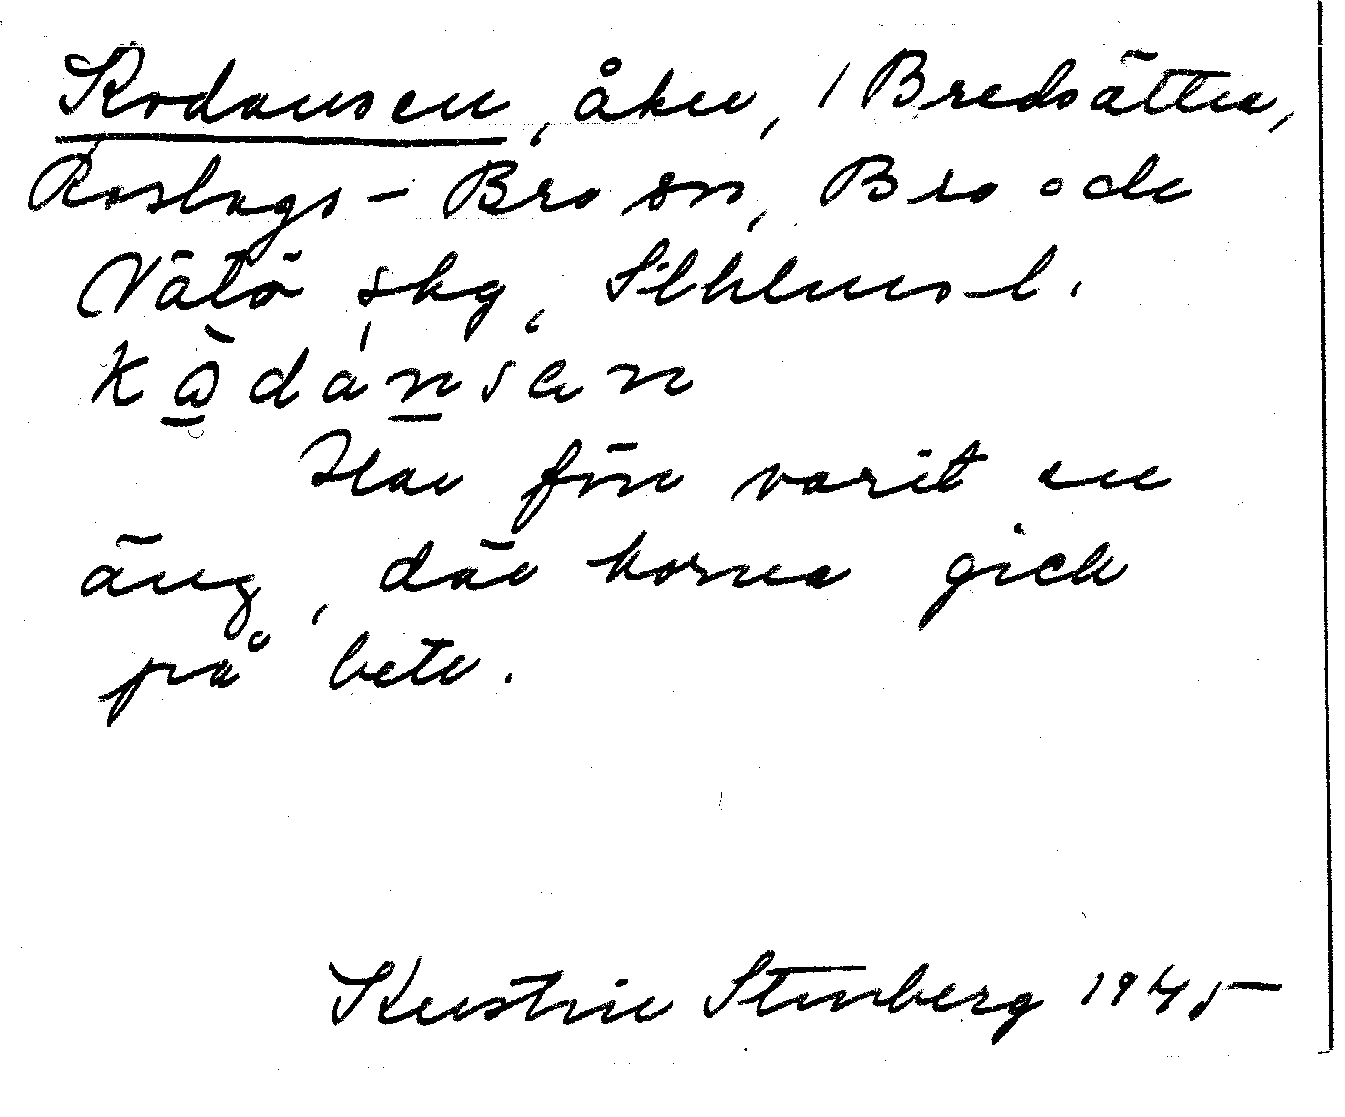 Kodansen, åker, i Bredsättra,
Roslags-Bro sn, Bro o de
Vätö skg, Sthlms l.
kådánsen
Har förr varit en
äng, där korna gick
på bete.
Kerstin Stenberg 1945